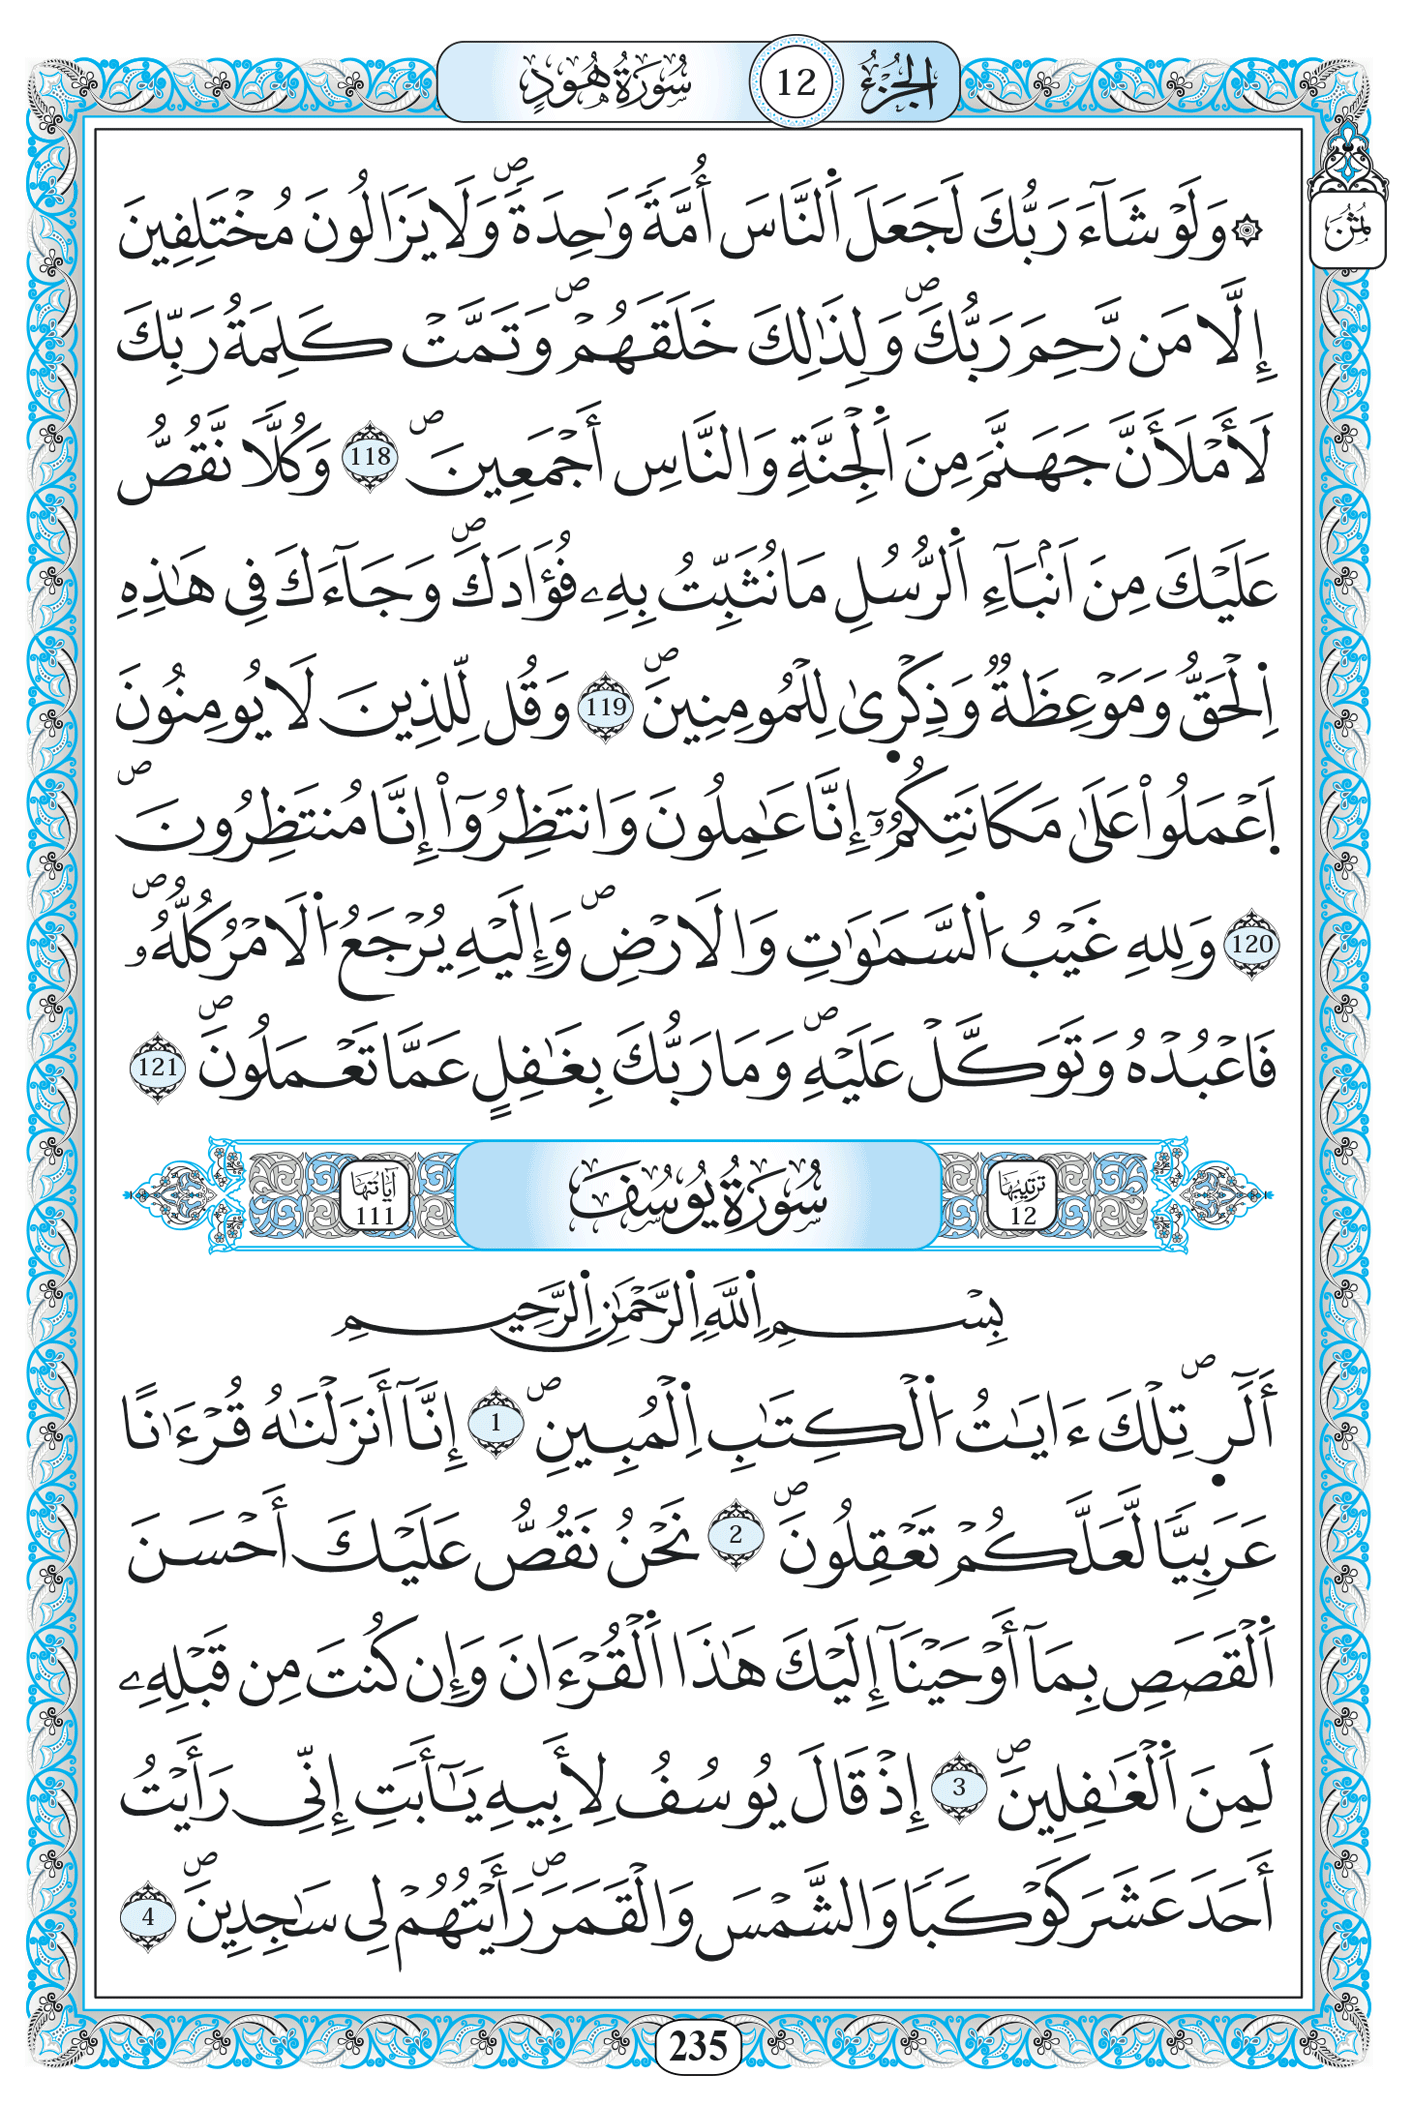 الجزء 12 سورة هود
ثمن
۞ وَلَوْ شَآءَ رَبُّكَ لَجَعَلَ اَ۬لنَّاسَ أُمَّةٗ وَٰحِدَةٗۖ وَلَا يَزَالُونَ مُخْتَلِفِينَ
إِلَّا مَن رَّحِمَ رَبُّكَۖ وَلِذَٰلِكَ خَلَقَهُمْۖ وَتَمَّتْ كَلِمَةُ رَبِّكَ
لَأَمْلَأَنَّ جَهَنَّمَ مِنَ اَ۬لْجِنَّةِ وَالنَّاسِ أَجْمَعِينَۖ 118 وَكُلّٗا نَّقُصُّ
عَلَيْكَ مِنَ اَنۢبَآءِ اِ۬لرُّسُلِ مَا نُثَبِّتُ بِهِۦ فُؤَادَكَۖ وَجَآءَكَ فِي هَٰذِهِ
اِ۬لْحَقُّ وَمَوْعِظَةٞ وَذِكْر۪ىٰ لِلْمُومِنِينَۖ 119 وَقُل لِّلذِينَ لَا يُومِنُونَ
اَ۪عْمَلُواْ عَلَىٰ مَكَانَتِكُمُۥٓ إِنَّا عَٰمِلُونَ وَانتَظِرُوٓاْ إِنَّا مُنتَظِرُونَۖ
120 وَلِلهِ غَيْبُ اُ۬لسَّمَٰوَٰتِ وَالَارْضِۖ وَإِلَيْهِ يُرْجَعُ اُ۬لَامْرُ كُلُّهُۥۖ
فَاعْبُدْهُ وَتَوَكَّلْ عَلَيْهِۖ وَمَا رَبُّكَ بِغَٰفِلٍ عَمَّا تَعْمَلُونَۖ 121
ترتيبها 12 سُورَةُ يُوسُفَ آياتها 111
بِسْمِ اِ۬للَّهِ اِ۬لرَّحْمَٰنِ اِ۬لرَّحِيمِ
أَلَٓر۪ۖ تِلْكَ ءَايَٰتُ اُ۬لْكِتَٰبِ اِ۬لْمُبِينِۖ 1 إِنَّآ أَنزَلْنَٰهُ قُرْءَٰناً
عَرَبِيّاٗ لَّعَلَّكُمْ تَعْقِلُونَۖ 2 نَحْنُ نَقُصُّ عَلَيْكَ أَحْسَنَ
اَ۬لْقَصَصِ بِمَآ أَوْحَيْنَآ إِلَيْكَ هَٰذَا اَ۬لْقُرْءَانَ وَإِن كُنتَ مِن قَبْلِهِۦ
لَمِنَ اَ۬لْغَٰفِلِينَۖ 3 إِذْ قَالَ يُوسُفُ لِأَبِيهِ يَٰٓأَبَتِ إِنِّي رَأَيْتُ
أَحَدَ عَشَرَ كَوْكَباٗ وَالشَّمْسَ وَالْقَمَرَۖ رَأَيْتُهُمْ لِي سَٰجِدِينَۖ 4
235